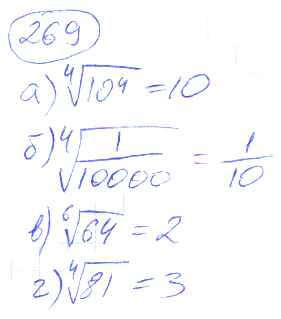 269
а) ⁴√10⁴ = 10
б) ⁴√(1/10000) = 1/10
в) ⁶√64 = 2
г) ⁴√81 = 3